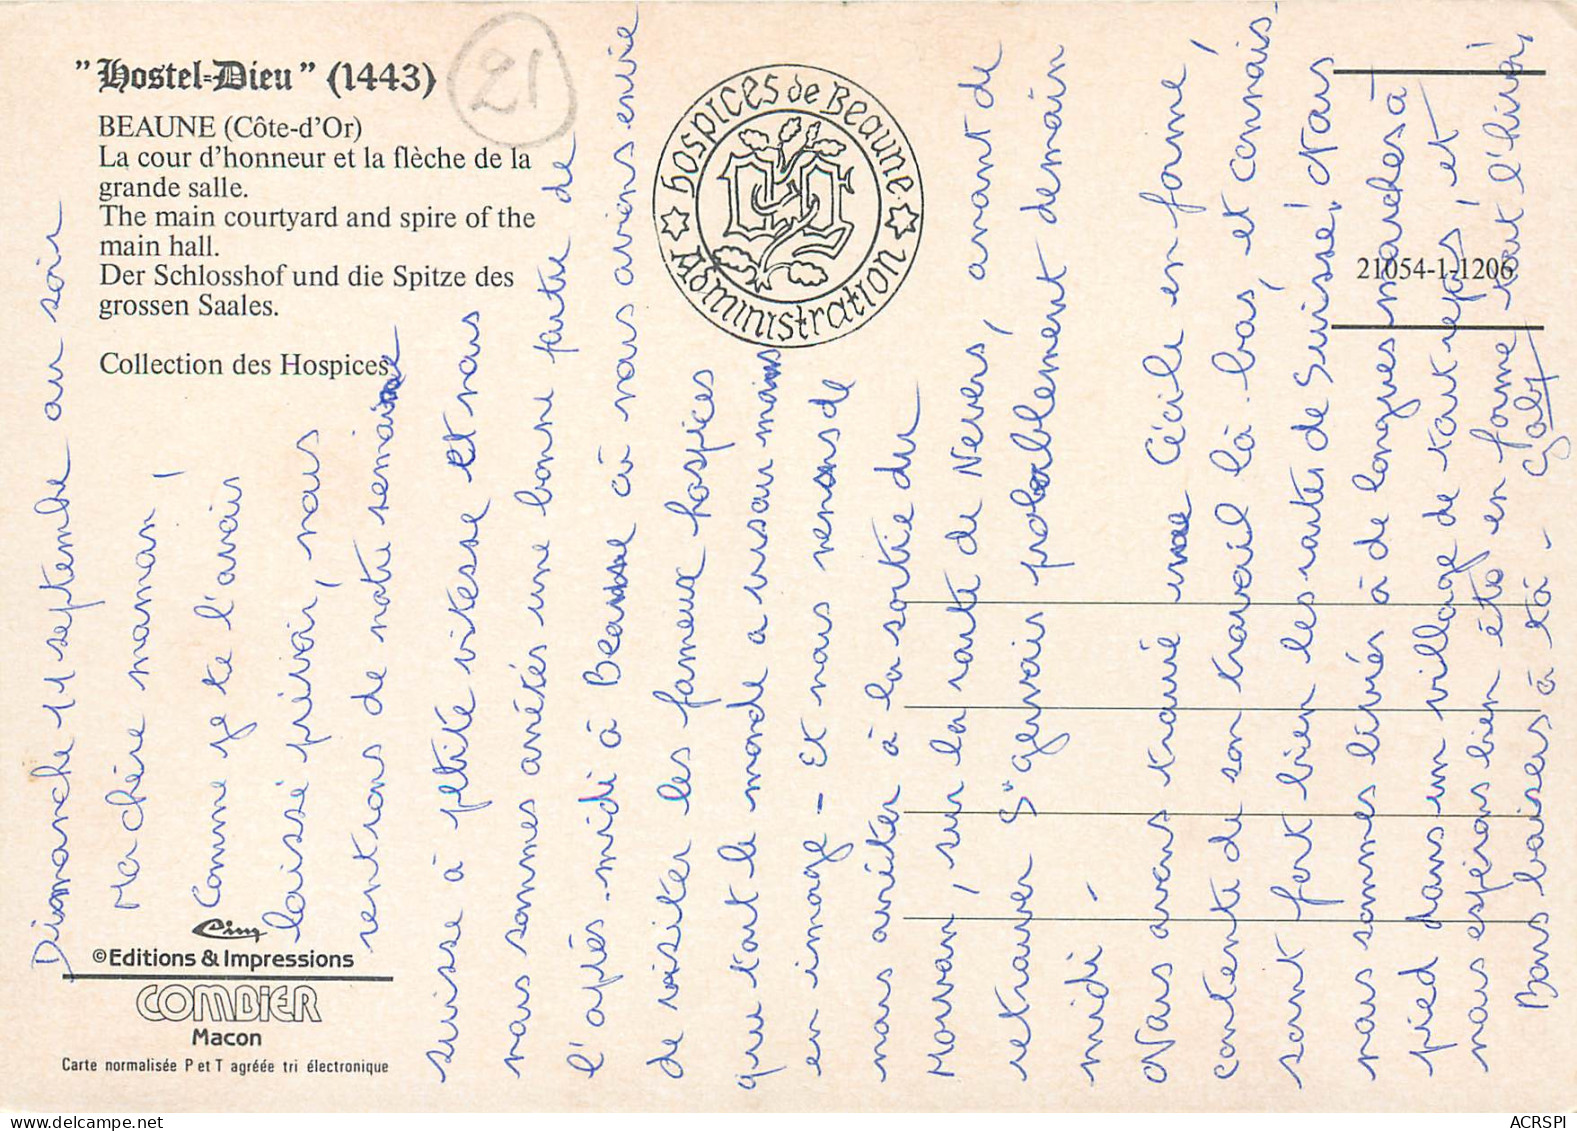 "Hostel-Dieu" (1443)
BEAUNE (Côte-d'Or)
La cour d'honneur et la flèche de la
grande salle.
The main courtyard and spire of the
main hall.
Der Schlosshof und die Spitze des
grossen Saales.
Collection des Hospices
21
hospices de Beaune
Administration
21054-1-1206
Cim
©Editions & Impressions
COMBIER
Macon
Carte normalisée P et T agréée tri électronique
Dimanche 11 septembre au soir
Ma chère maman!
Comme je te l'avais
laissé prévoir, nous
rentrons de notre semaine
suisse à petite vitesse et nous
nous sommes arrêtés une bonne partie de
l'après-midi à Beaune où nous avions envie
de visiter les fameux hospices
que tout le monde a vus au moins
en image - Et nous venons de
nous arrêter à la sortie du
Morvan, sur la route de Nevers, avant de
retrouver St gervais probablement demain
midi -
Nous avons trouvé Cécile en forme,
contente de son travail là-bas, et connais-
sant fort bien les routes de Suisse! Nous
nous sommes livrés à de longues marches à
pied dans un village de tout repos, et
nous espérons bien être en forme tout l'hiver,
Bons baisers à toi - Gaby
ACRSPI